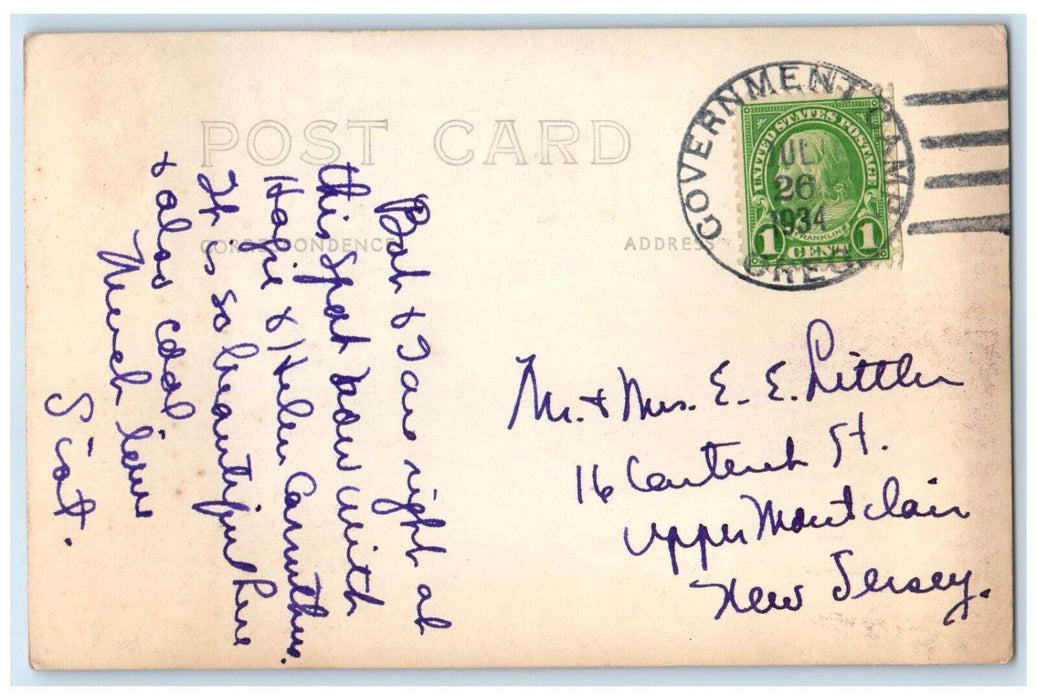 POST CARD
CORRESPONDENCE
ADDRESS
GOVERNMENT CAMP
OREG.
JUL
26
1934
UNITED STATES POSTAGE
FRANKLIN
1 CENT 1
Bob & I are right at
this spot now with
Hagie & Helen Carruthers.
It is so beautiful here
& also cool
Much love
Mr. & Mrs. E. E. Littler
16 St.
Upper Montclair
New Jersey.